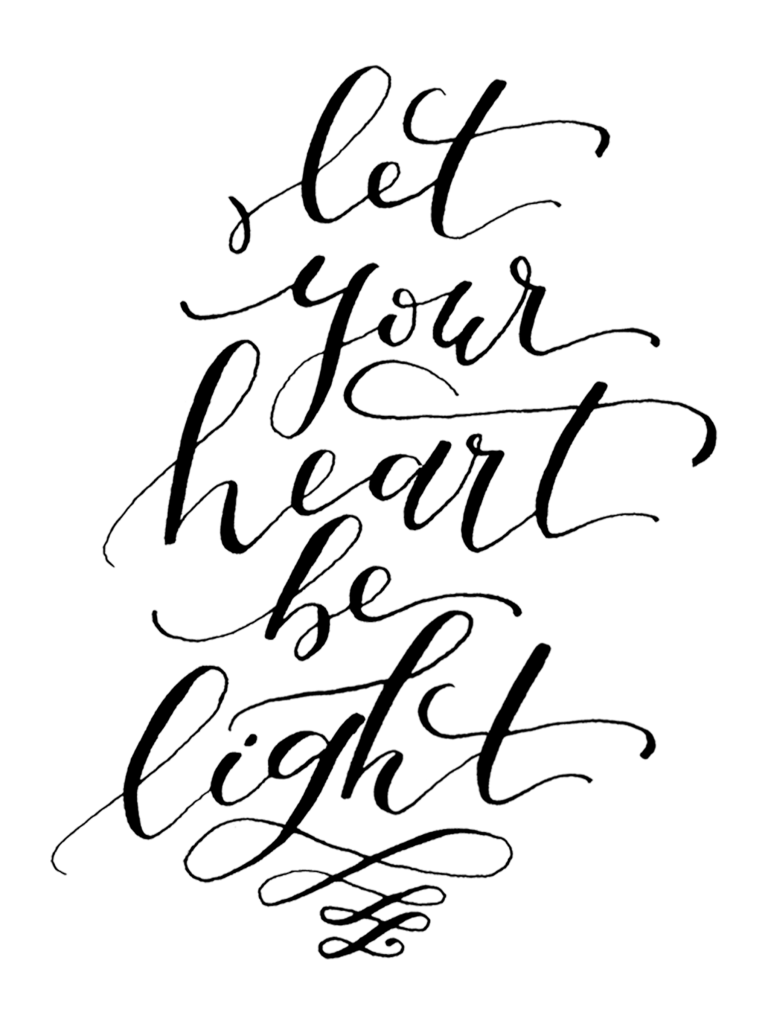 let
your
heart
be
light